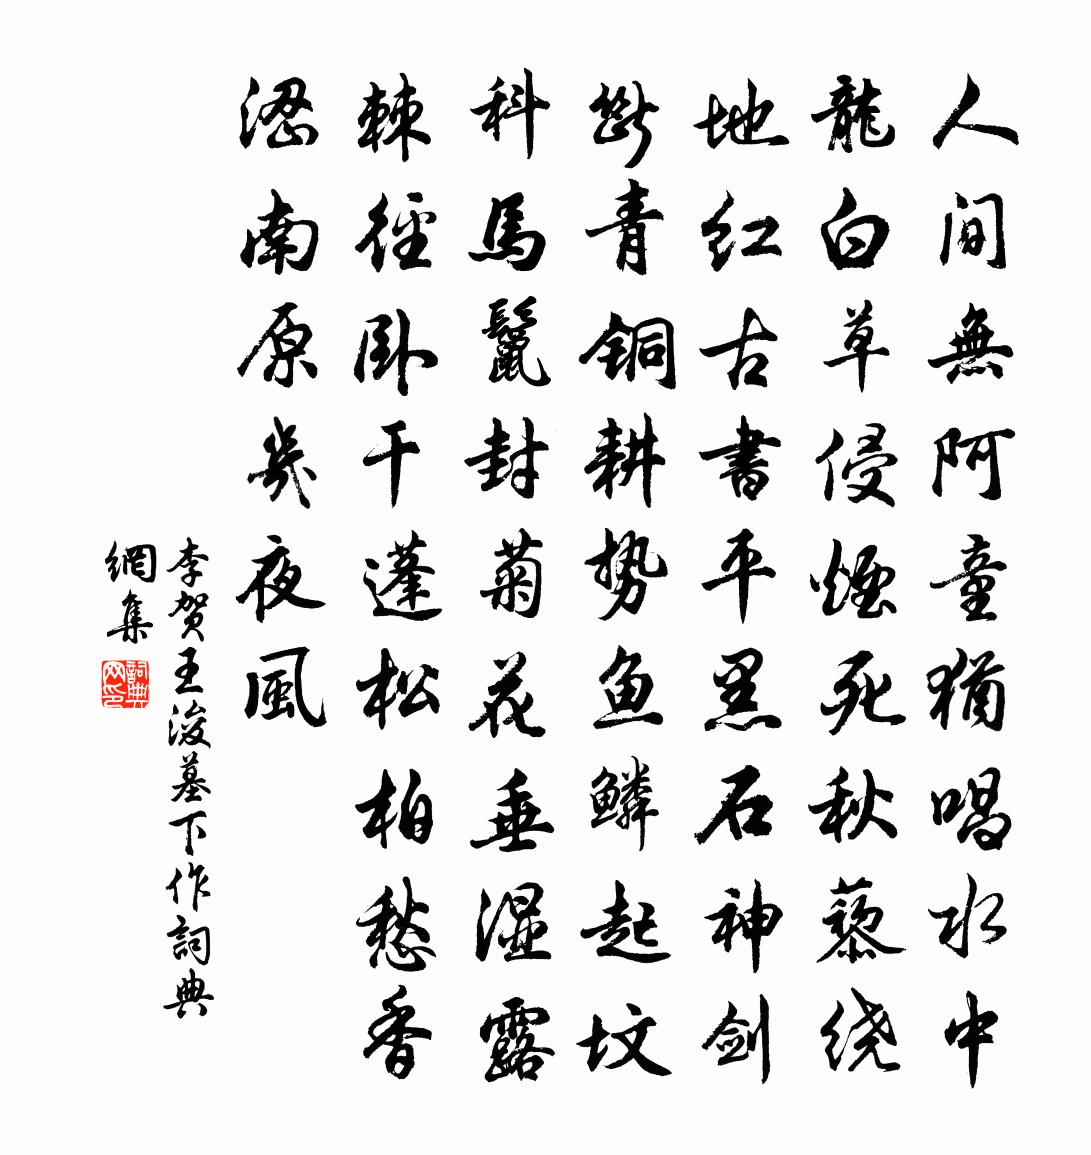 人间無阿童猶唱水中
龍白草侵煙死秋藜绕
地红古書平黑石神剑
斷青铜耕势鱼鳞起坟
科馬鬣封菊花垂湿露
棘徑卧干蓬松柏愁香
涩南原幾夜風
李贺王浚墓下作詞典
網集
詞典网印